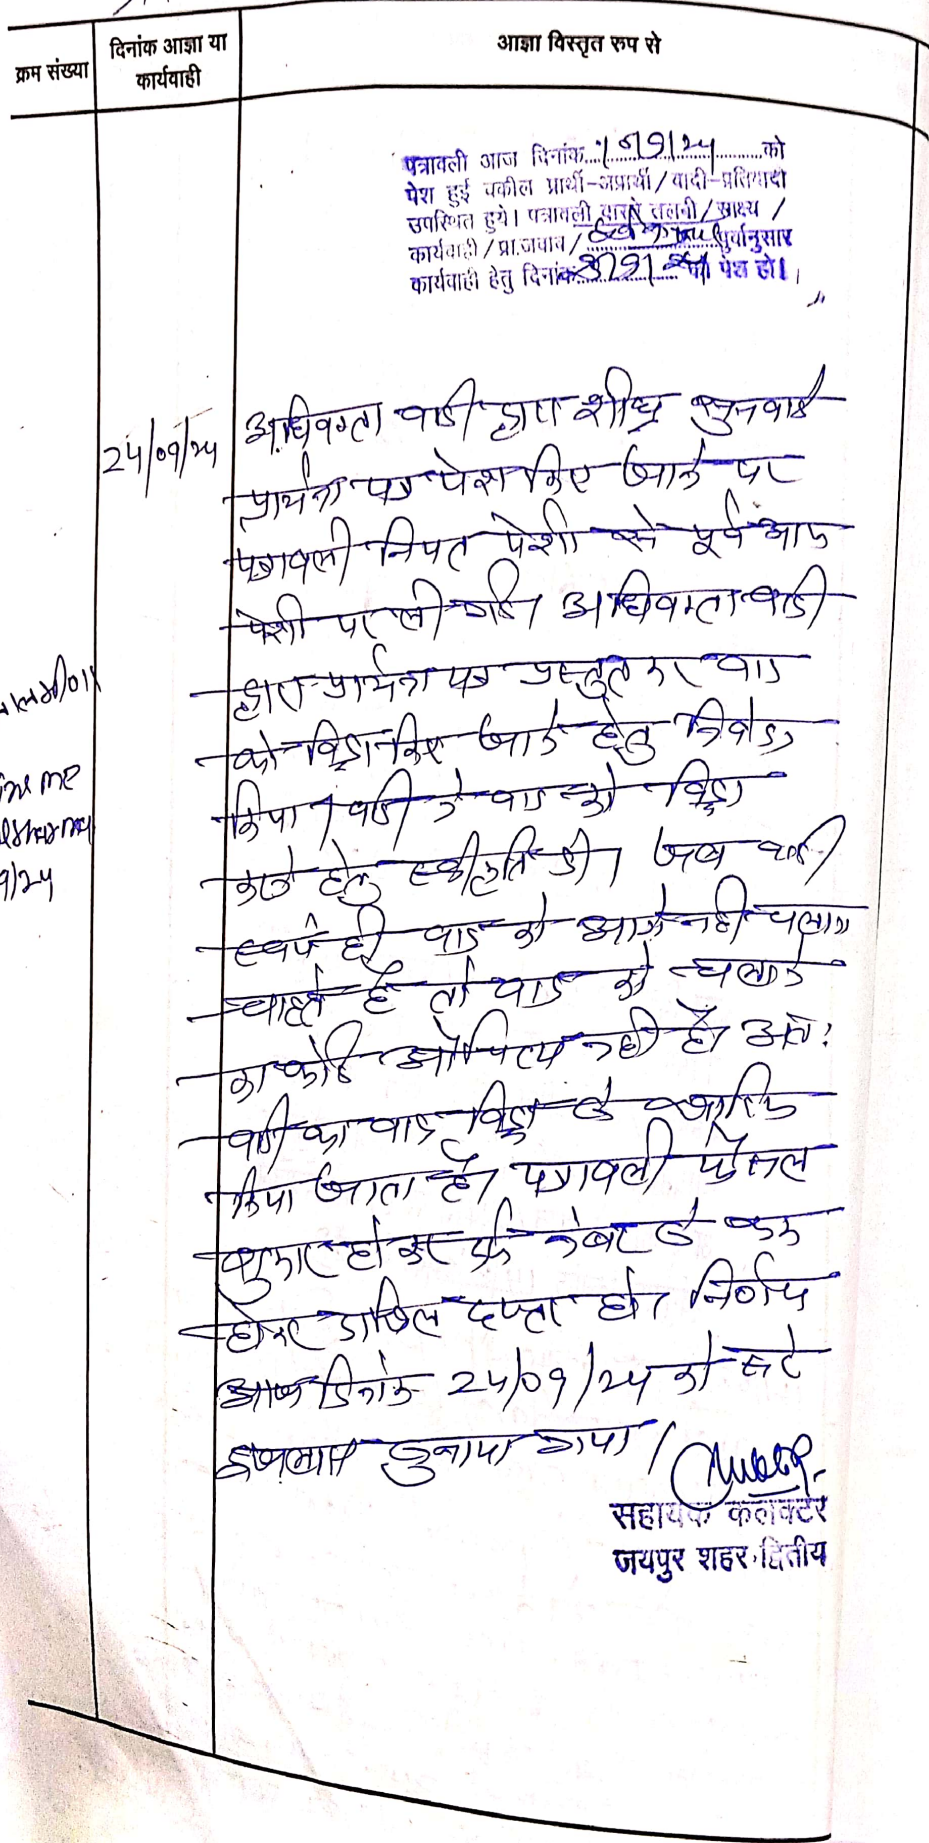 क्रम संख्या
दिनांक आज्ञा या
कार्यवाही
आज्ञा विस्तृत रुप से
पत्रावली आज दिनांक को
पेश हुई वकील प्रार्थी-अप्रार्थी/वादी-प्रतिवादी
उपस्थित हुये। पत्रावली वास्ते तलबी/साक्ष्य/
कार्यवाही/प्रा.जवाब/ पुर्वानुसार
कार्यवाही हेतु दिनांक को पेश हो।
24/09/24
अधिवक्ता वादी द्वारा शीघ्र सुनवाई
प्रार्थना पत्र पेश किए जाने पर
पत्रावली नियत पेशी से पूर्व आज
पेशी पर ली गई। अधिवक्ता वादी
द्वारा प्रार्थना पत्र प्रस्तुत कर वाद
को विड्रा किए जाने हेतु निवेदन
किया। वादी ने वाद को विड्रा
करने हेतु स्वीकृति दी। जब वादी
स्वयं ही वाद को आगे नही चलाना
चाहते है तो वाद को चलाने
का कोई औचित्य नही है। अतः
वादी का वाद विड्रा के खारिज
किया जाता है। पत्रावली फैसल
शुमार होकर दर्ज नंबर से कम
होकर दाखिल दफ्तर हो। निर्णय
आज दिनांक 24/09/24 को सरे
इजलास सुनाया गया।
सहायक कलक्टर
जयपुर शहर-द्वितीय